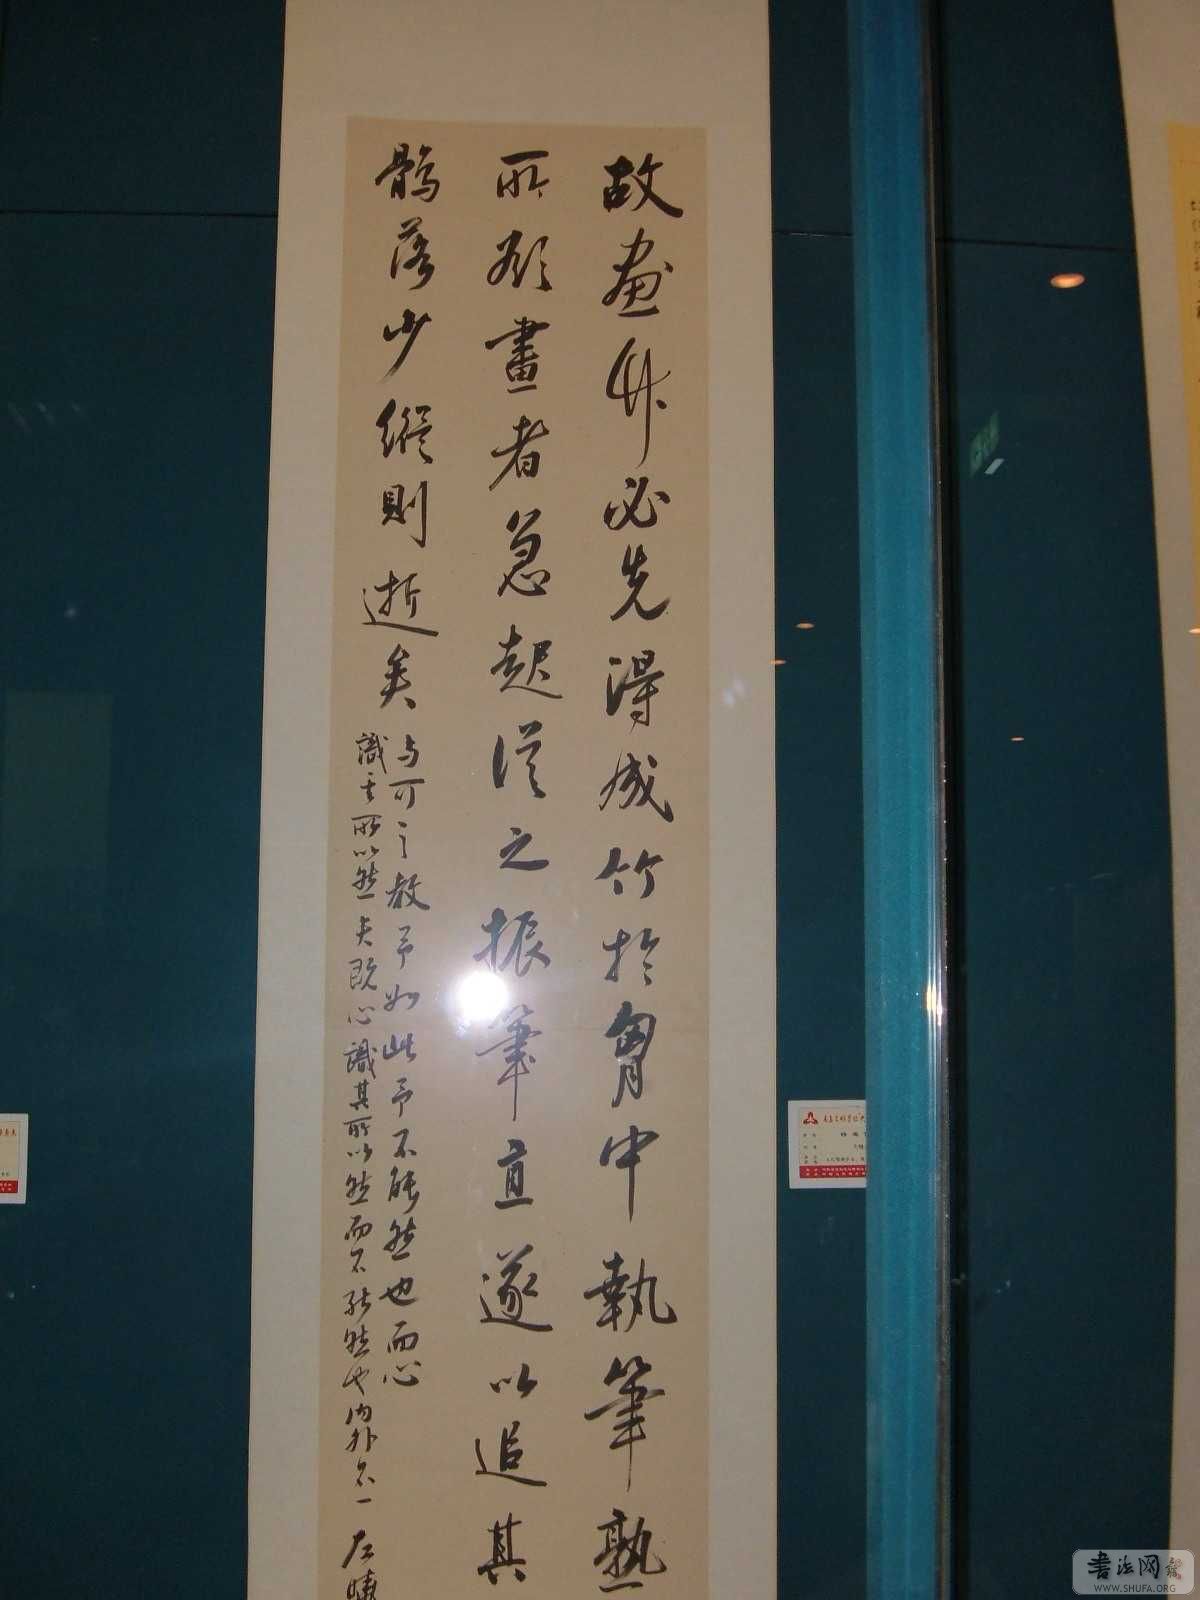 故畫竹必先得成竹於胷中執筆熟
所欲畫者急起從之振筆直遂以追其
鶻落少縱則逝矣
与可之教予如此予不能然也而心
識其所以然夫既心識其所以然而不能然也内外不一
书法网
WWW.SHUFA.ORG